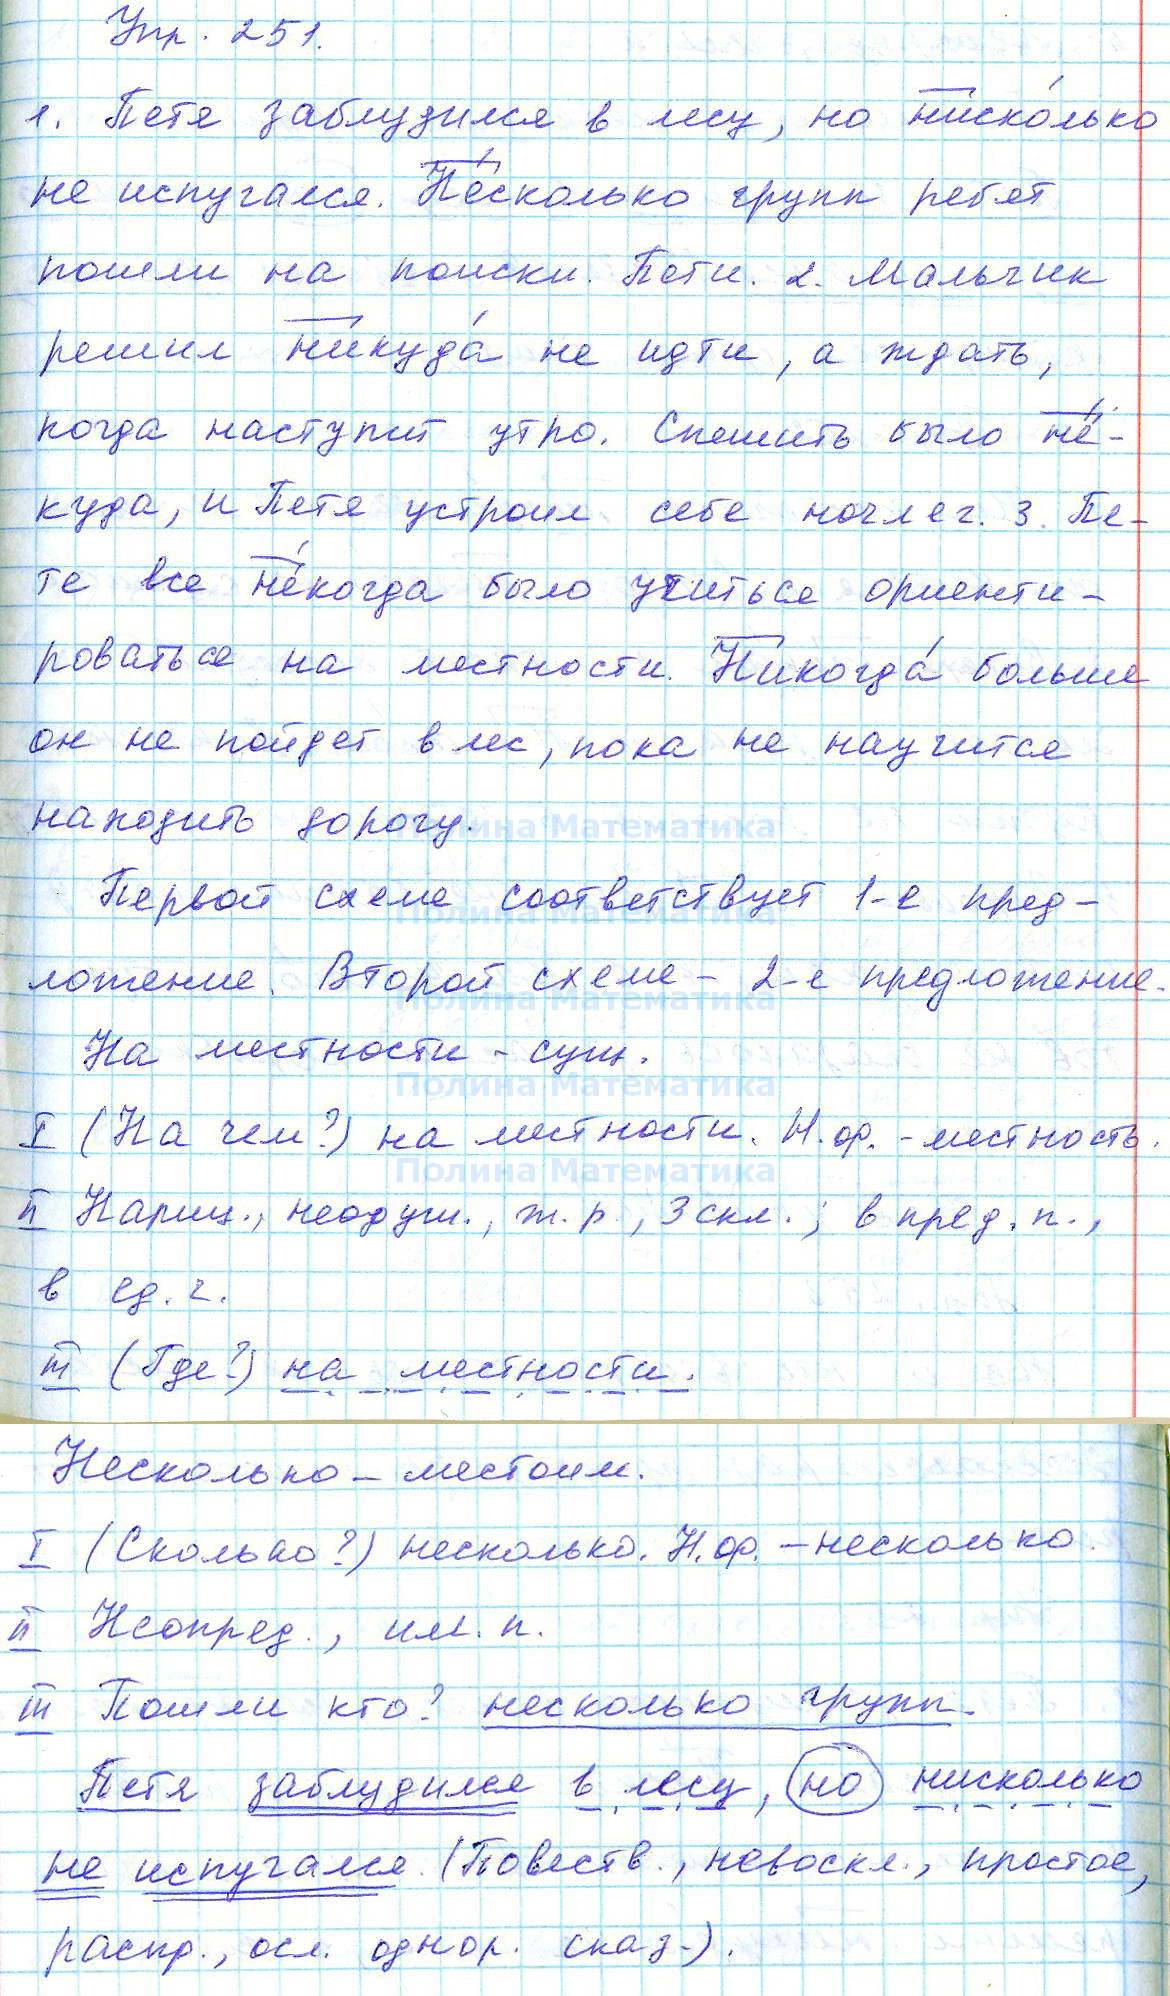 Упр. 251.
1. Петя заблудился в лесу, но ниско́лько
не испугался. Не́сколько групп ребят
пошли на поиски. Пети. 2. Мальчик
решил никуда́ не идти, а ждать,
когда наступит утро. Спешить было не́-
куда, и Петя устроил себе ночлег. 3. Пе-
те все не́когда было учиться ориенти-
роваться на местности. Никогда́ больше
он не пойдет в лес, пока не научится
находить дорогу.
Полина Математика
Первой схеме соответствует 1-е пред-
Полина Математика
ложение. Второй схеме - 2-е предложение.
Полина Математика
На местности - сущ.
Полина Математика
I (На чем?) на местности. Н.ф. - местность.
Полина Математика
II Нариц., неодуш., ж.р., 3 скл.; в пред. п.,
в ед. ч.
III (Где?) на местности.
Несколько - местоим.
I (Сколько?) несколько. Н.ф. - несколько.
II Неопред., им. п.
III Пошли кто? несколько групп.
Петя заблудился в лесу, но нисколько
не испугался. (Повеств., невоскл., простое,
распр., осл. однор. сказ.).